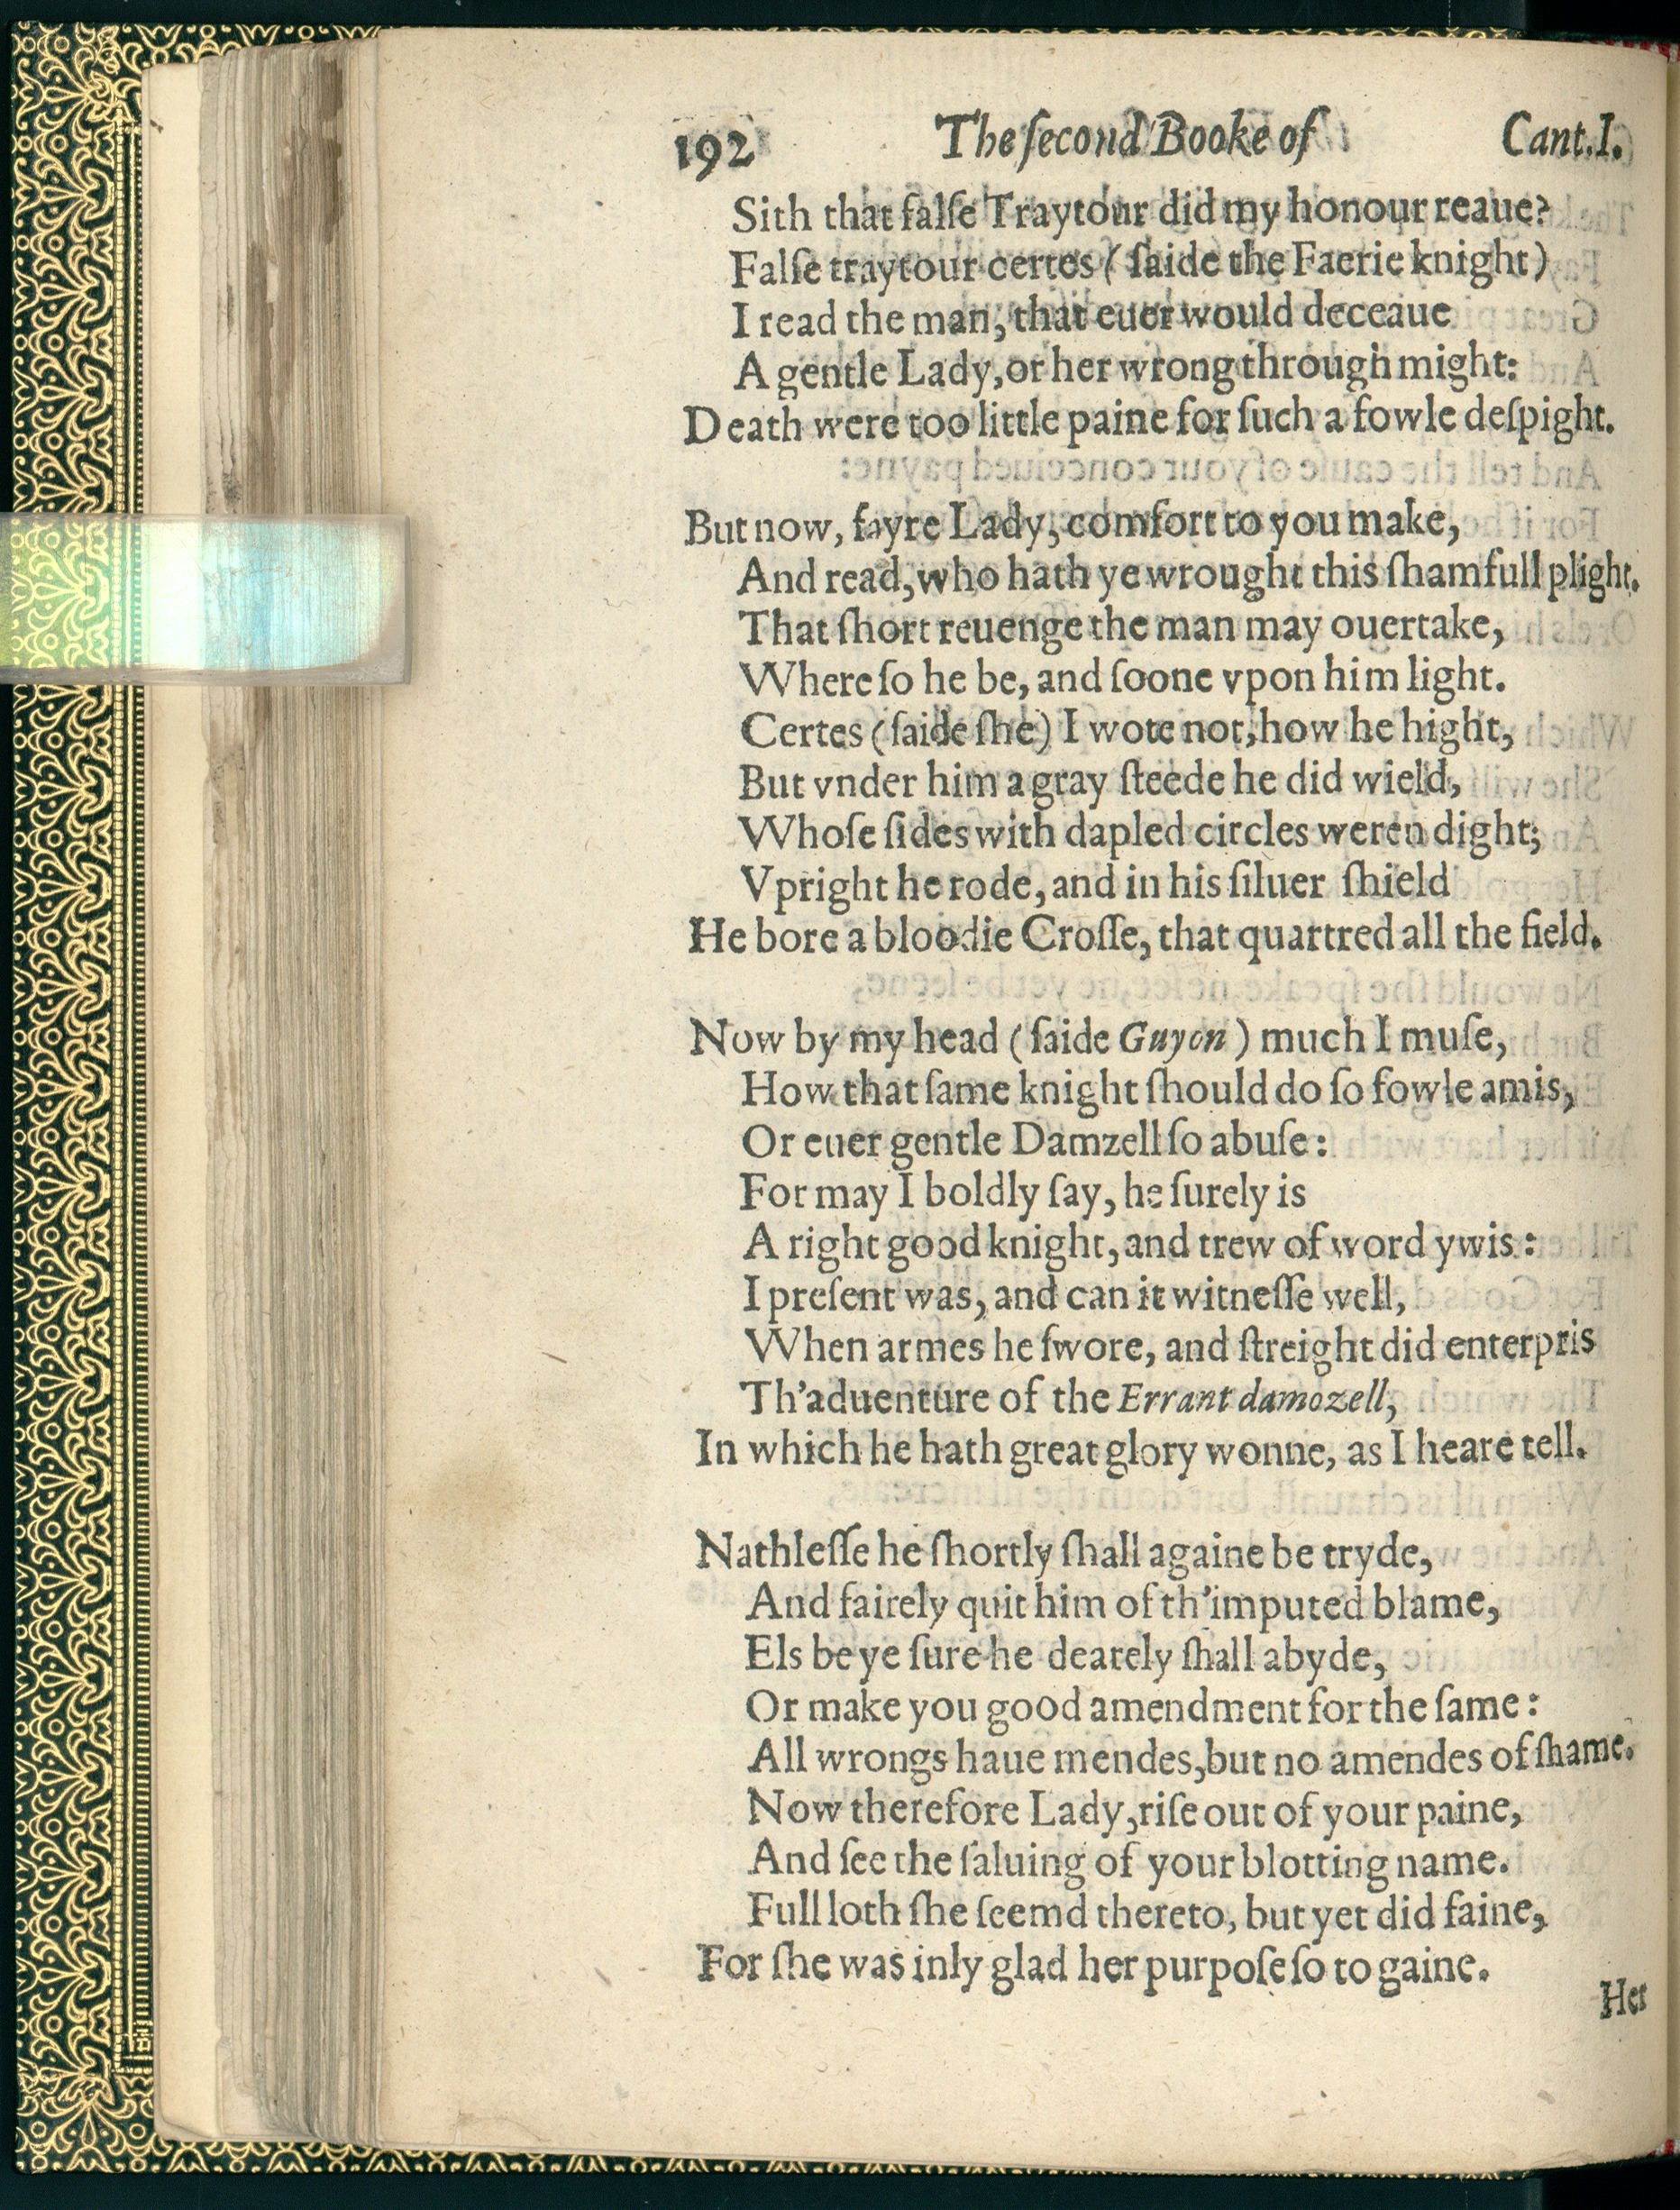 192 The ſecond Booke of Cant.I.
Sith that falſe Traytour did my honour reaue?
Falſe traytour certes (ſaide the Faerie knight)
I read the man, that euer would deceaue
A gentle Lady, or her wrong through might:
Death were too little paine for ſuch a fowle deſpight.
But now, fayre Lady, comfort to you make,
And read, who hath ye wrought this ſhamfull plight.
That ſhort reuenge the man may ouertake,
Where ſo he be, and ſoone vpon him light.
Certes (ſaide ſhe) I wote not, how he hight,
But vnder him a gray ſteede he did wield,
Whoſe ſides with dapled circles weren dight;
Vpright he rode, and in his ſiluer ſhield
He bore a bloodie Croſſe, that quartred all the field.
Now by my head (ſaide Guyon) much I muſe,
How that ſame knight ſhould do ſo fowle amis,
Or euer gentle Damzell ſo abuſe:
For may I boldly ſay, he ſurely is
A right good knight, and trew of word ywis:
I preſent was, and can it witneſſe well,
When armes he ſwore, and ſtreight did enterpris
Th'aduenture of the Errant damozell,
In which he hath great glory wonne, as I heare tell.
Nathleſſe he ſhortly ſhall againe be tryde,
And fairely quit him of th'imputed blame,
Els be ye ſure he dearely ſhall abyde,
Or make you good amendment for the ſame:
All wrongs haue mendes, but no amendes of ſhame.
Now therefore Lady, riſe out of your paine,
And ſee the ſaluing of your blotting name.
Full loth ſhe ſeemd thereto, but yet did faine,
For ſhe was inly glad her purpoſe ſo to gaine.
Her